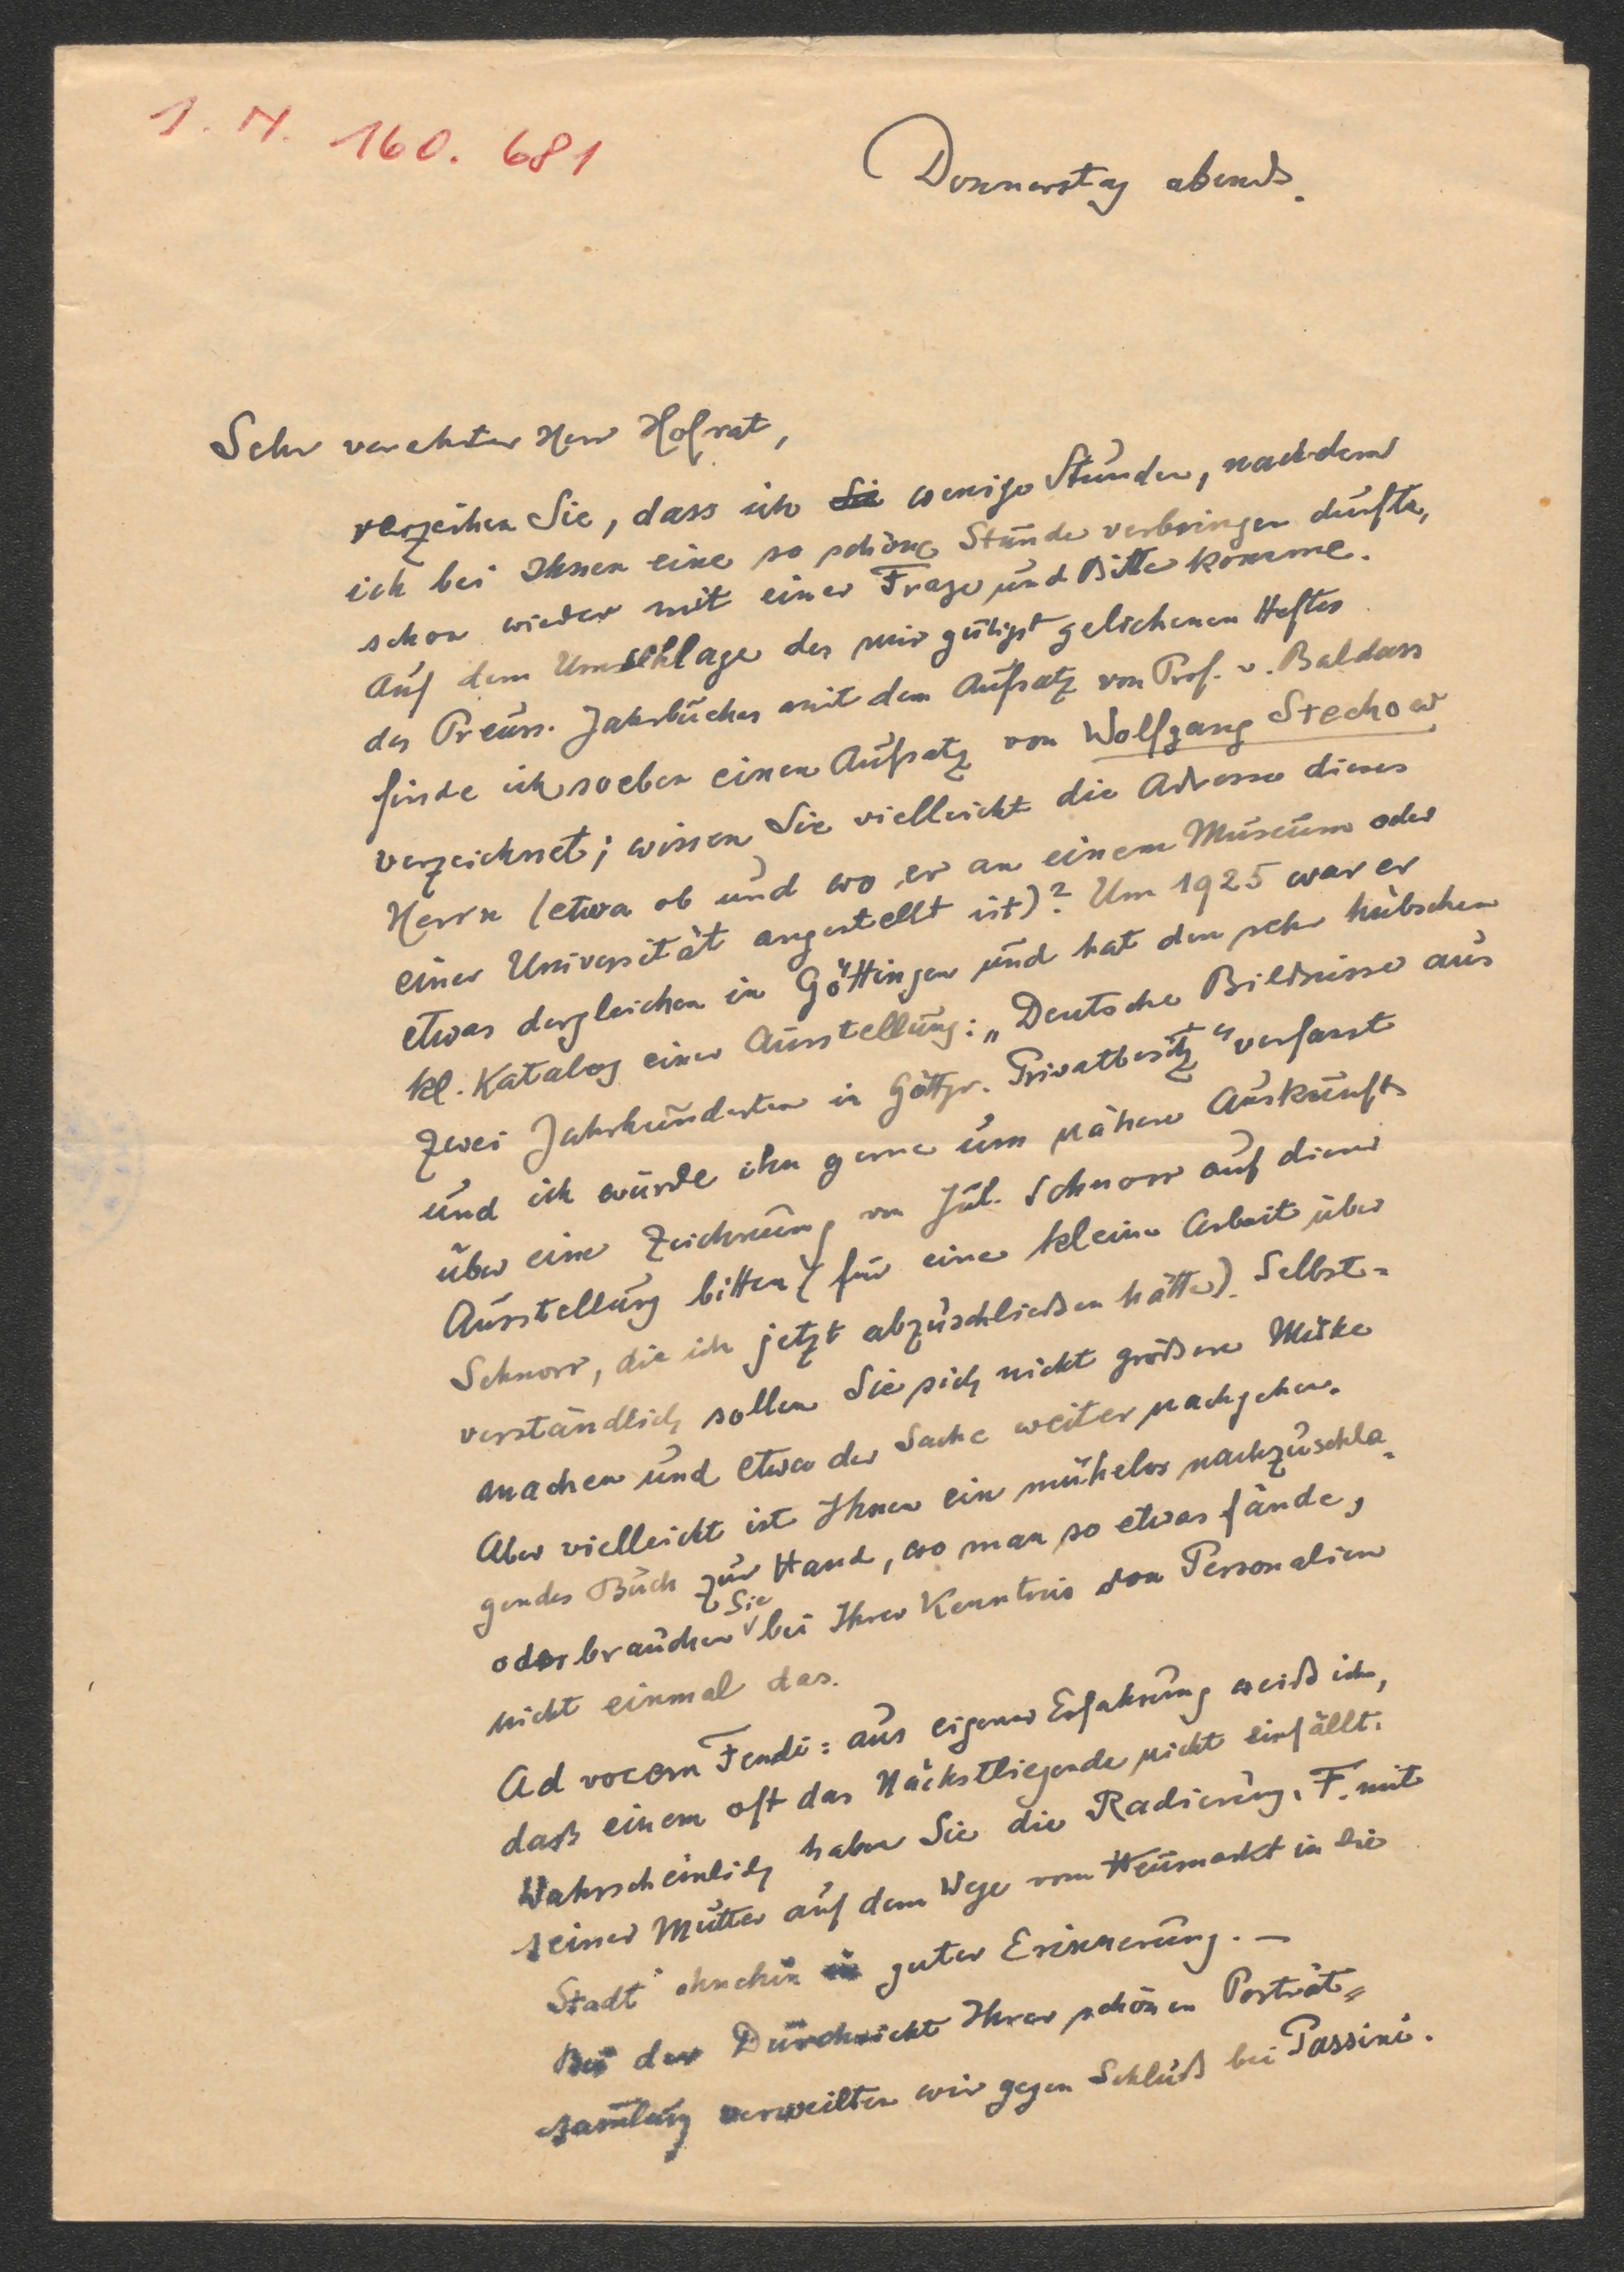 I. N. 160.681
Donnerstag abends.
Sehr verehrter Herr Hofrat,
verzeihen Sie, dass ich Sie wenige Stunden, nachdem
ich bei Ihnen eine so schöne Stunde verbringen durfte,
schon wieder mit einer Frage und Bitte komme.
Auf dem Umschlage des mir gütigst geliehenen Heftes
des Preuss. Jahrbuches mit dem Aufsatz von Prof. v. Baldass
finde ich soeben einen Aufsatz von Wolfgang Stechow
verzeichnet; wissen Sie vielleicht die Adresse dieses
Herrn (etwa ob und wo er an einem Museum oder
einer Universität angestellt ist)? Um 1925 war er
etwas dergleichen in Göttingen und hat den sehr hübschen
kl. Katalog einer Ausstellung: „Deutsche Bildnisse aus
zwei Jahrhunderten in Göttgr. Privatbesitz" verfasst
und ich würde ihn gerne um nähere Auskunft
über eine Zeichnung von Jul. Schnorr auf dieser
Ausstellung bitten (für eine kleine Arbeit über
Schnorr, die ich jetzt abzuschließen hätte). Selbst=
verständlich sollen Sie sich nicht größere Mühe
machen und etwa der Sache weiter nachgehen.
Aber vielleicht ist Ihnen ein mühelos nachzuschla=
gendes Buch zur Hand, wo man so etwas fände,
oder brauchen Sie bei Ihrer Kenntnis von Personalien
nicht einmal das.
Ad vocem Fendi: aus eigener Erfahrung weiß ich,
daß einem oft das Nächstliegende nicht einfällt.
Wahrscheinlich haben Sie die Radierung „F. mit
seiner Mutter auf dem Wege vom Heumarkt in die
Stadt" ohnehin in guter Erinnerung. —
Bei der Durchsicht Ihrer schönen Porträt=
sammlung verweilten wir gegen Schluß bei Passini.